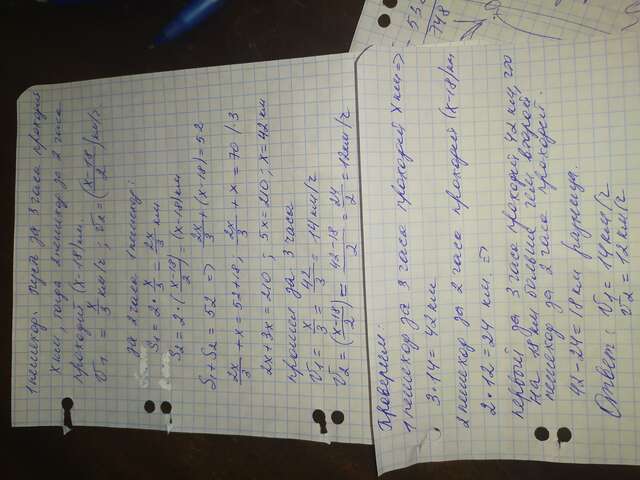 1 пешеход. Пусть за 3 часа проходит
x км, тогда 2 пешеход за 2 часа
проходит (x-18) км.
V1 = x/3 км/ч ; V2 = (x-18/2) км/ч.
за 2 часа 1 пешеход:
S1 = 2 · x/3 = 2x/3 км
S2 = 2 · (x-18/2) = (x-18) км
S1 + S2 = 52 => 2x/3 + (x-18) = 52
2x/3 + x = 52+18; 2x/3 + x = 70 /·3
2x + 3x = 210 ; 5x = 210 ; x = 42 км
прошел за 3 часа
V1 = x/3 = 42/3 = 14 км/ч
V2 = (x-18/2) = 42-18/2 = 24/2 = 12 км/ч
532
748
Проверяем.
1 пешеход за 3 часа проходит x км =>
3·14 = 42 км
2 пешеход за 2 часа проходит (x-18) км
2·12 = 24 км. =>
первый за 3 часа проходит 42 км, это
на 18 км больше чем второй
пешеход за 2 часа проходит.
42-24 = 18 км разница.
Ответ: V1 = 14 км/ч
V2 = 12 км/ч